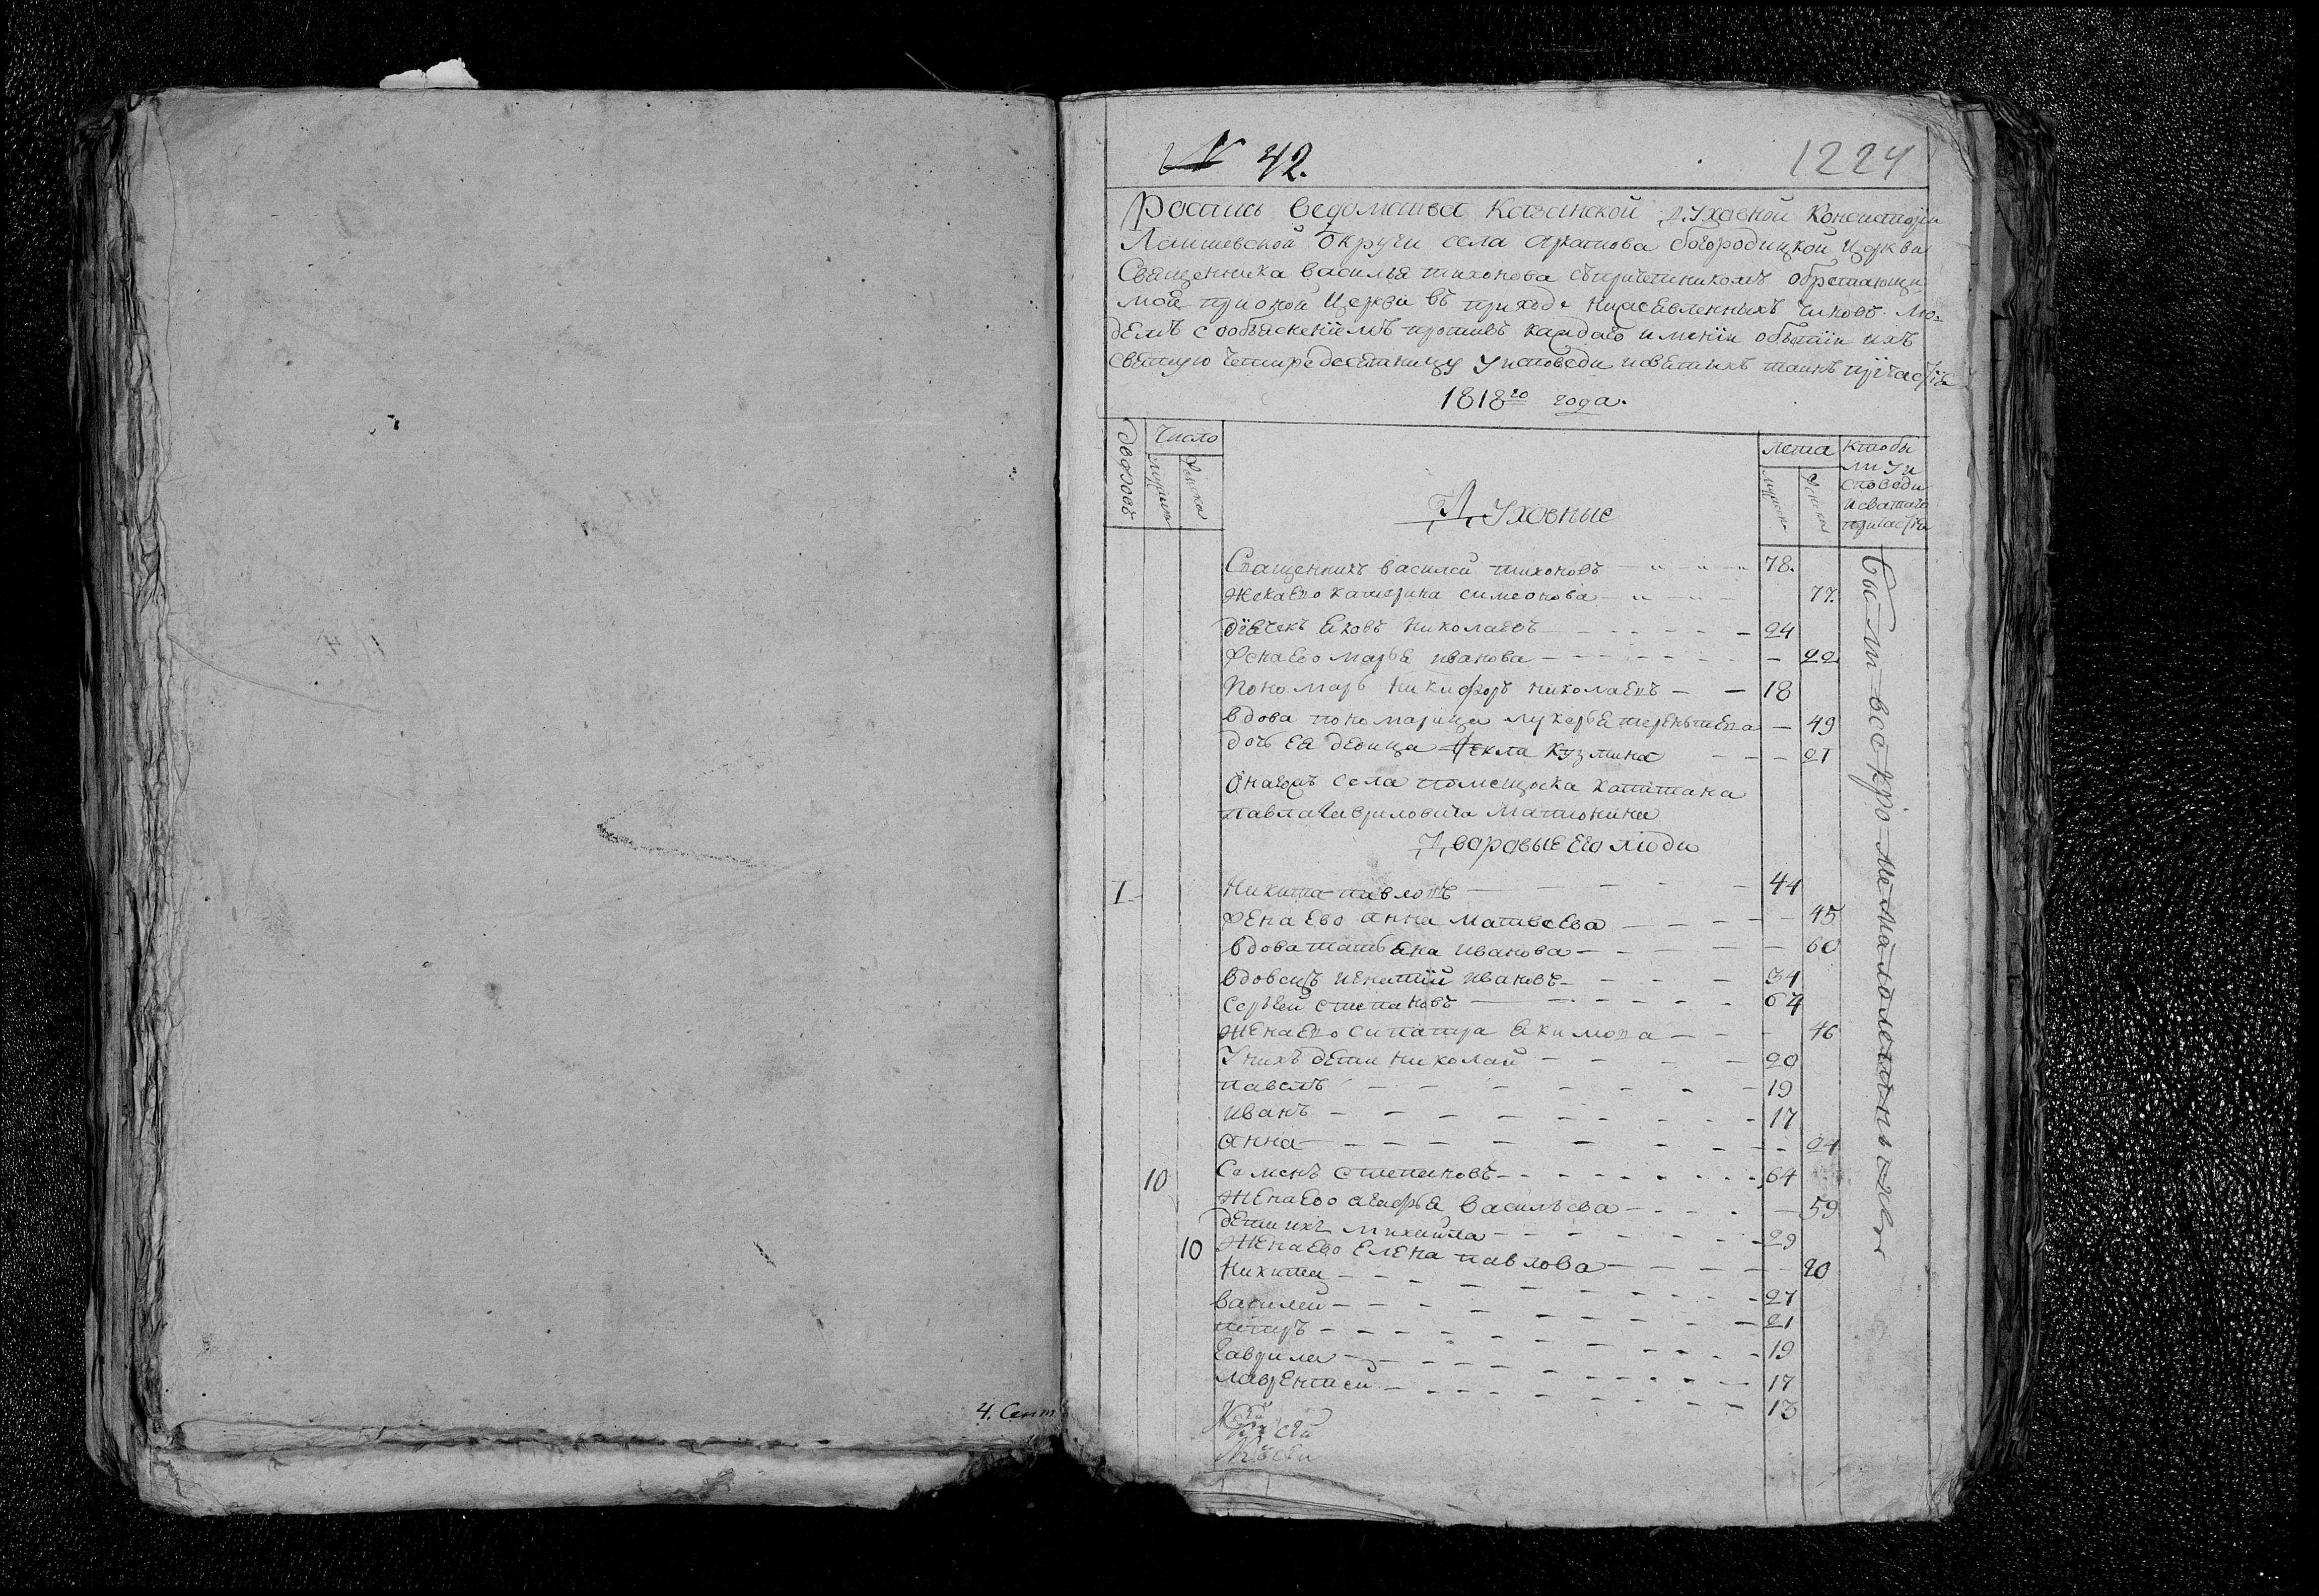 4. Сент
№ 42.
1224
Роспись ведомства Казанской духовной Консистории
Лаишевской Округи села Аркатова богородицкой Церкви
Священника василья тихонова съпричетникомъ обретающи
мся при оной Церкви въ приходе нижеявленныхъ чиновъ лю-
демъ собъяснениемъ противъ каждаго имении обытии ихъ
святую четыредесятницу у исповеди исвятыхъ таинъ причастия
1818го года.
дворовъ
Число
мужеска
женска
Духовные
лета
мужеска
женска
Ктобы
ли уи
споведи
исвятаго
причастия
Священникъ василей тихоновъ 78.
Жена его катерина симеонова 77.
дьячекъ яковъ николаевъ 24
Жена его марья иванова 22
Пономарь Никифоръ николаевъ 18
вдова пономарица лукерья терентьева 49
дочь ея девица фекла кузмина 21
Онагожъ села помещика капитана
павла гавриловича Матюнина
Дворовые его люди
1 Никита павловъ 44
Жена его анна матвеева 45
вдова татьяна иванова 60
вдовецъ игнатий ивановъ 34
Сергей степановъ 64
Жена его сипатра якимова 46
Унихъ дети николай 20
павелъ 19
иванъ 17
анна 24
10 Семенъ степановъ 64
Жена его агафья васильева 59
дети ихъ михайла 29
10 Жена его Елена павлова 20
Никита 27
василей 21
петръ 19
гаврила 17
лаврентей 13
Были все кроме малолетныхъ